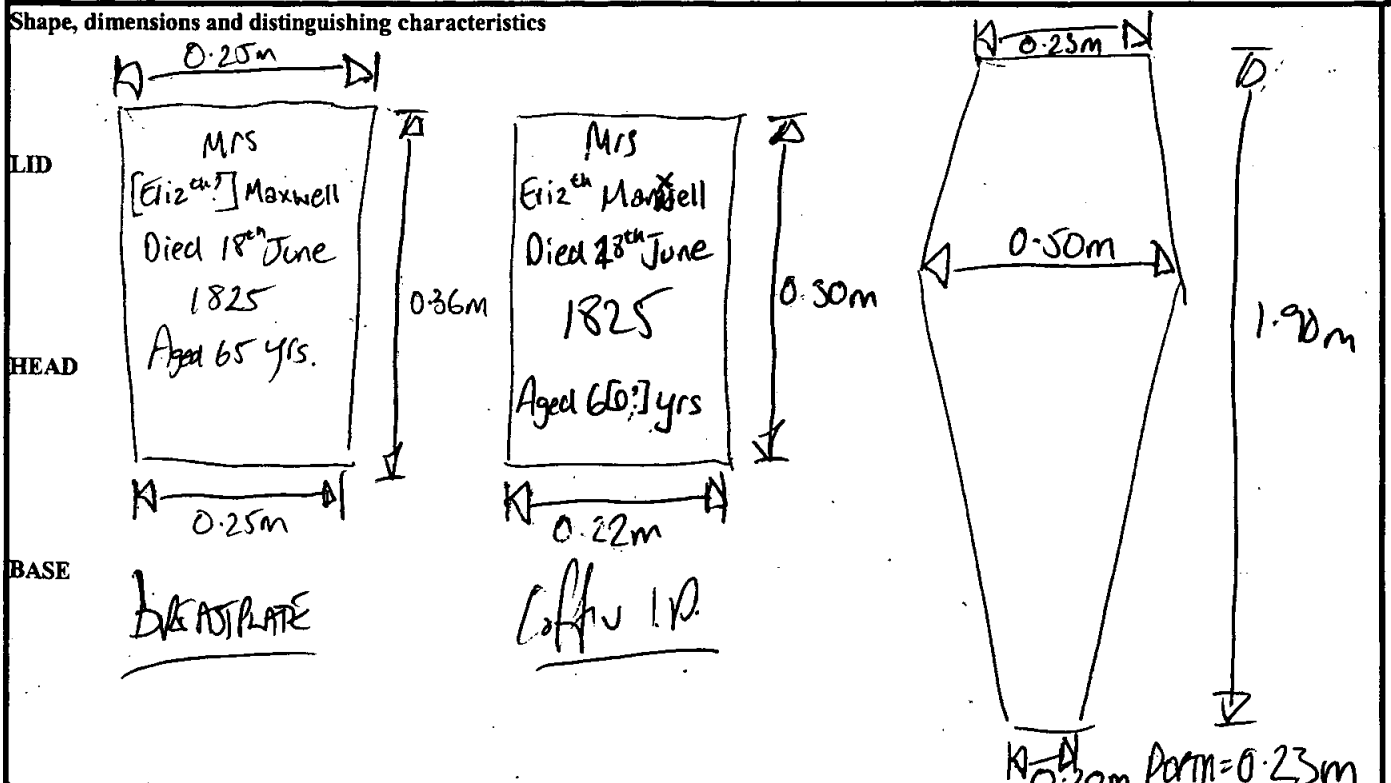 Shape, dimensions and distinguishing characteristics
0.25m
Mrs
[Eliz^th?] Maxwell
Died 18^th June
1825
Aged 65 yrs.
0.36m
0.25m
BREASTPLATE
Mrs
Eliz^th Maxwell
Died 18^th June
1825
Aged 6[0?] yrs
0.30m
0.22m
Coffin I.P.
0.23m
0.50m
1.90m
0.20m
=0.23m
LID
HEAD
BASE